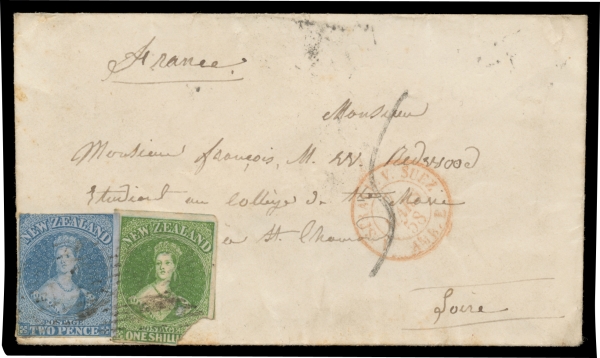 France.
Monsieur
Monsieur françois, M. W. Redwood
Etudiant au Collège de Ste Marie
a St. Chamond
Loire
V. SUEZ
5
NEW ZEALAND
POSTAGE
TWO PENCE
NEW ZEALAND
POSTAGE
ONE SHILL